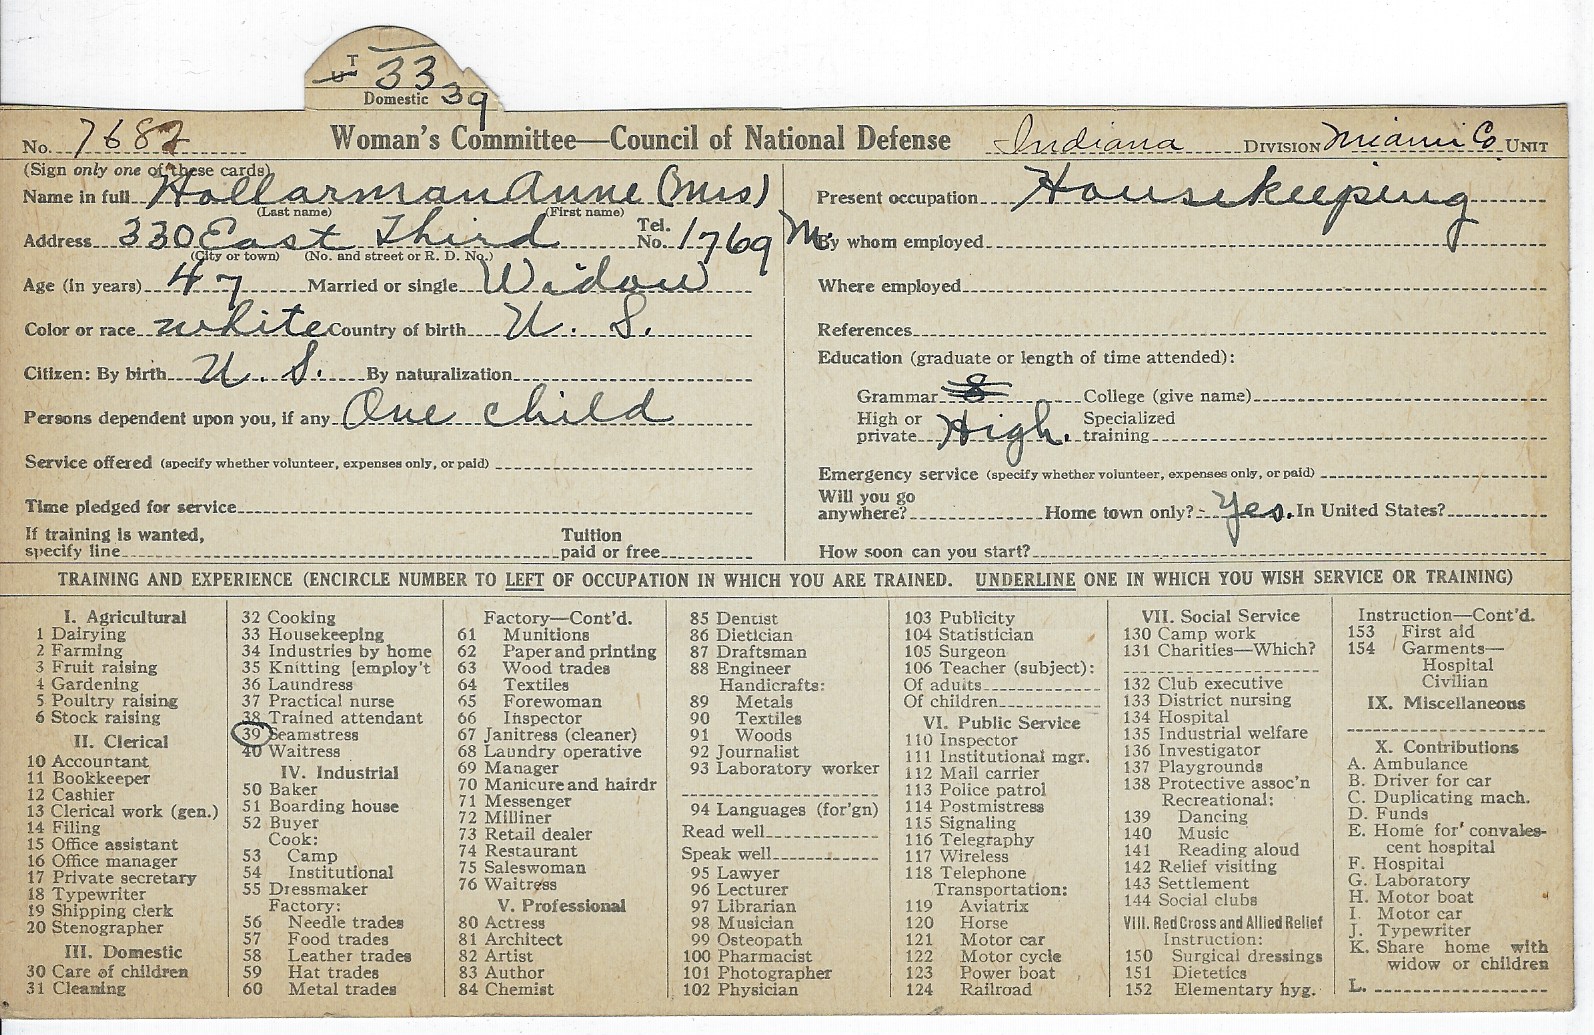 T
U 33
Domestic 39
No. 7682 Woman's Committee—Council of National Defense Indiana DIVISION Miami Co. UNIT
(Sign only one of these cards)
Name in full Hollarman Anne (Mrs)
(Last name) (First name)
Address 330 East Third Tel. No. 1769 M.
(City or town) (No. and street or R. D. No.)
Age (in years) 47 Married or single Widow
Color or race white Country of birth U. S.
Citizen: By birth U. S. By naturalization
Persons dependent upon you, if any One child
Service offered (specify whether volunteer, expenses only, or paid)
Time pledged for service
If training is wanted,
specify line Tuition paid or free
Present occupation Housekeeping
By whom employed
Where employed
References
Education (graduate or length of time attended):
Grammar 8 College (give name)
High or private High. Specialized training
Emergency service (specify whether volunteer, expenses only, or paid)
Will you go
anywhere? Home town only? Yes. In United States?
How soon can you start?
TRAINING AND EXPERIENCE (ENCIRCLE NUMBER TO LEFT OF OCCUPATION IN WHICH YOU ARE TRAINED. UNDERLINE ONE IN WHICH YOU WISH SERVICE OR TRAINING)
I. Agricultural
1 Dairying
2 Farming
3 Fruit raising
4 Gardening
5 Poultry raising
6 Stock raising
II. Clerical
10 Accountant
11 Bookkeeper
12 Cashier
13 Clerical work (gen.)
14 Filing
15 Office assistant
16 Office manager
17 Private secretary
18 Typewriter
19 Shipping clerk
20 Stenographer
III. Domestic
30 Care of children
31 Cleaning
32 Cooking
33 Housekeeping
34 Industries by home
35 Knitting [employ't
36 Laundress
37 Practical nurse
38 Trained attendant
39 Seamstress
40 Waitress
IV. Industrial
50 Baker
51 Boarding house
52 Buyer
Cook:
53 Camp
54 Institutional
55 Dressmaker
Factory:
56 Needle trades
57 Food trades
58 Leather trades
59 Hat trades
60 Metal trades
Factory—Cont'd.
61 Munitions
62 Paper and printing
63 Wood trades
64 Textiles
65 Forewoman
66 Inspector
67 Janitress (cleaner)
68 Laundry operative
69 Manager
70 Manicure and hairdr
71 Messenger
72 Milliner
73 Retail dealer
74 Restaurant
75 Saleswoman
76 Waitress
V. Professional
80 Actress
81 Architect
82 Artist
83 Author
84 Chemist
85 Dentist
86 Dietician
87 Draftsman
88 Engineer
Handicrafts:
89 Metals
90 Textiles
91 Woods
92 Journalist
93 Laboratory worker
94 Languages (for'gn)
Read well
Speak well
95 Lawyer
96 Lecturer
97 Librarian
98 Musician
99 Osteopath
100 Pharmacist
101 Photographer
102 Physician
103 Publicity
104 Statistician
105 Surgeon
106 Teacher (subject):
Of adults
Of children
VI. Public Service
110 Inspector
111 Institutional mgr.
112 Mail carrier
113 Police patrol
114 Postmistress
115 Signaling
116 Telegraphy
117 Wireless
118 Telephone
Transportation:
119 Aviatrix
120 Horse
121 Motor car
122 Motor cycle
123 Power boat
124 Railroad
VII. Social Service
130 Camp work
131 Charities—Which?
132 Club executive
133 District nursing
134 Hospital
135 Industrial welfare
136 Investigator
137 Playgrounds
138 Protective assoc'n
Recreational:
139 Dancing
140 Music
141 Reading aloud
142 Relief visiting
143 Settlement
144 Social clubs
VIII. Red Cross and Allied Relief
Instruction:
150 Surgical dressings
151 Dietetics
152 Elementary hyg.
Instruction—Cont'd.
153 First aid
154 Garments—
Hospital
Civilian
IX. Miscellaneous
X. Contributions
A. Ambulance
B. Driver for car
C. Duplicating mach.
D. Funds
E. Home for convales-
cent hospital
F. Hospital
G. Laboratory
H. Motor boat
I. Motor car
J. Typewriter
K. Share home with
widow or children
L.